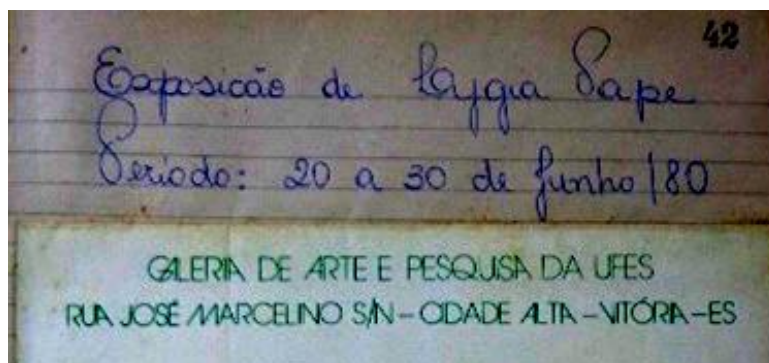 42
Exposicão de Lygia Pape
Periodo: 20 a 30 de Junho/80
GALERIA DE ARTE E PESQUISA DA UFES
RUA JOSÉ MARCELINO S/N - CIDADE ALTA - VITÓRIA - ES